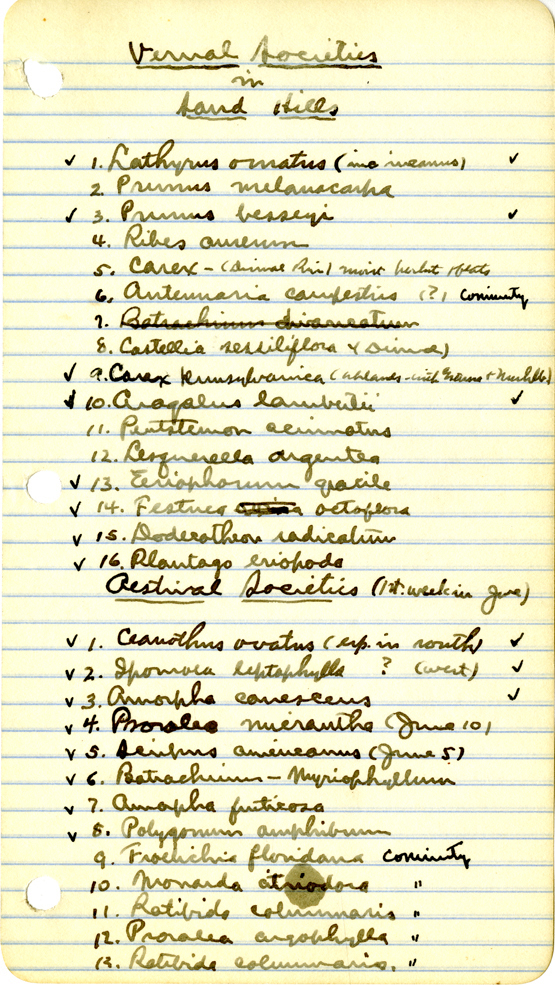 Vernal Societies
in
Sand Hills
✓ 1. Lathyrus ornatus (inc incanus) ✓
2. Prunus melanocarpa
✓ 3. Prunus besseyi ✓
4. Ribes aureum
5. Carex - moist
6. Antennaria campestris (?) Community
7. Batrachium divaricatum
8. Castellia sessiliflora
✓ 9. Carex Pennsylvanica
✓ 10. Aragalus lambertii ✓
11. Pentstemon acuminatus
12. Lesquerella argentea
✓ 13. Eeriophorum gracile
✓ 14. Festuca octoflora
✓ 15. Dodecatheon radicatum
✓ 16. Plantago eriopoda
Aestival Societies (1st. week in June)
✓ 1. Ceanothus ovatus (esp. in south) ✓
✓ 2. Ipomoea leptophylla ? (west) ✓
✓ 3. Amorpha canescens ✓
✓ 4. Psoralea micrantha (June 10)
✓ 5. Scirpus americanus (June 5)
✓ 6. Batrachium - Myriophyllum
✓ 7. Amorpha fruticosa
✓ 8. Polygonum amphibium
9. Froelichia floridana Community
10. Monarda citriodora "
11. Ratibida columnaris "
12. Psoralea argophylla "
13. Ratibida columnaris. "